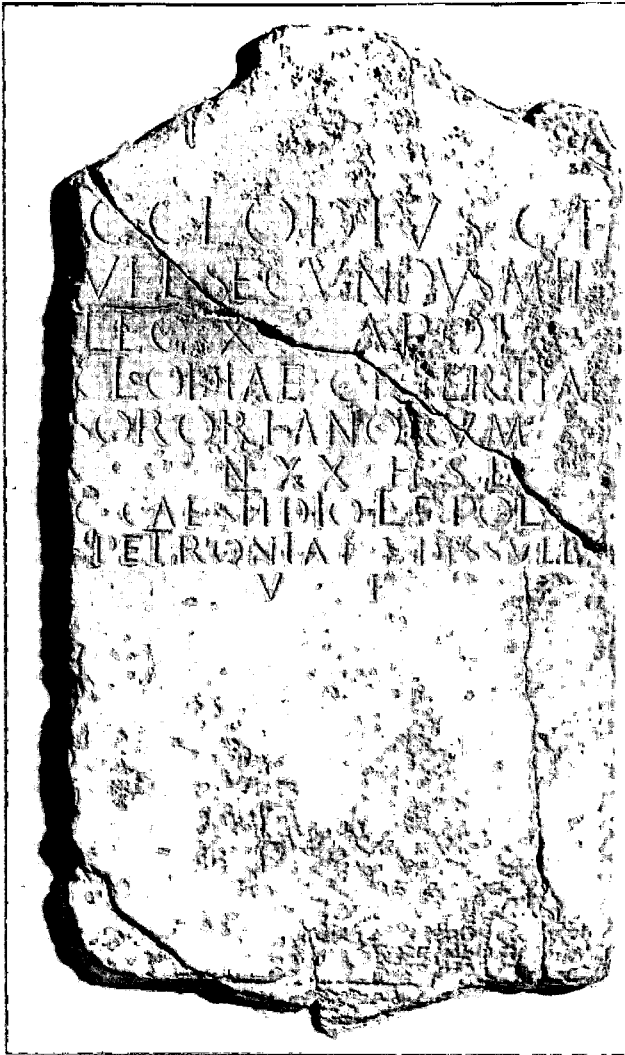 C · CLODIVS C F
VEL SECVNDVS MIL
LEG X APOL
CLODIAE C F TERTIA
SORORI ANORVM
N XX H S E
C · CAESIDIO L F POL
PETRONIAE
V · F